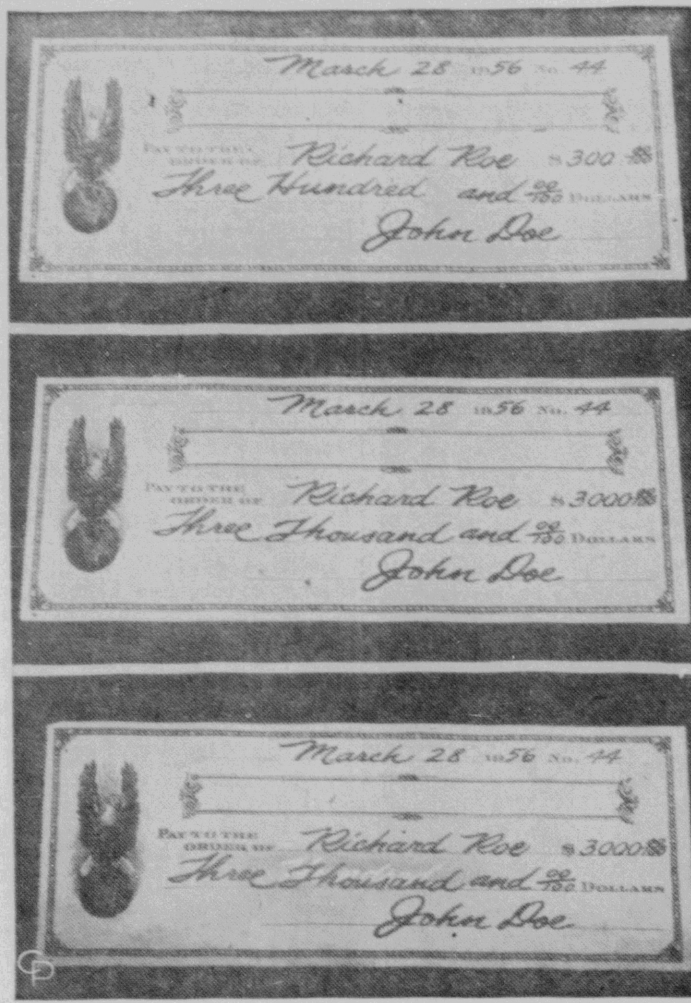 March 28 1956 No. 44
PAY TO THE
ORDER OF Richard Roe $300 00/100
Three Hundred and 00/100 DOLLARS
John Doe
March 28 1956 No. 44
PAY TO THE
ORDER OF Richard Roe $3000 00/100
Three Thousand and 00/100 DOLLARS
John Doe
March 28 1956 No. 44
PAY TO THE
ORDER OF Richard Roe $3000 00/100
Three Thousand and 00/100 DOLLARS
John Doe
CP